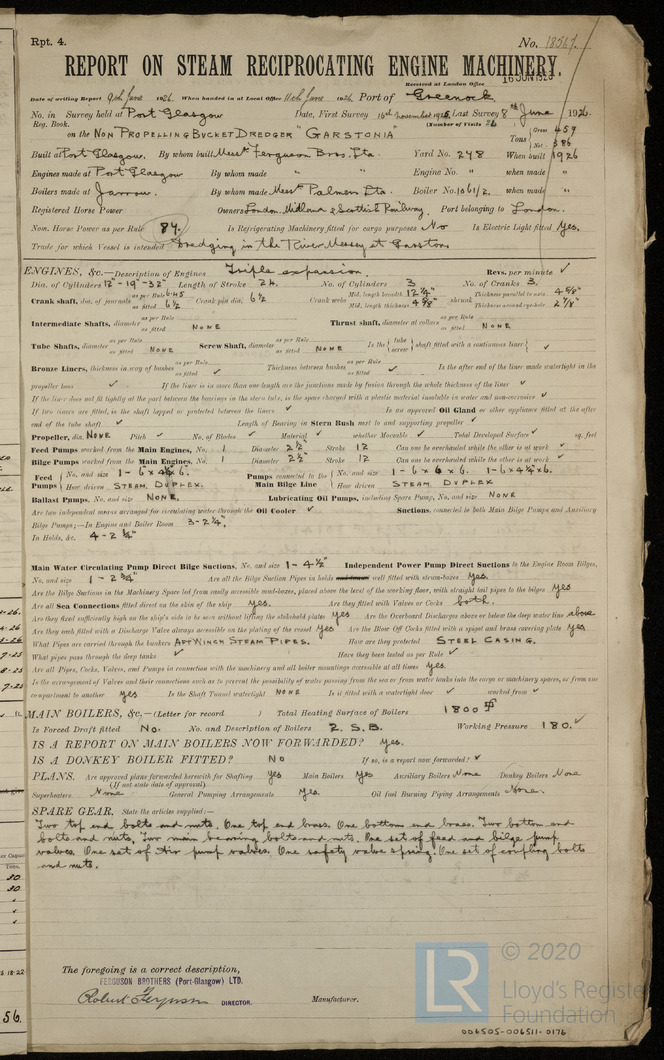 Rpt. 4.
No. 18567.
REPORT ON STEAM RECIPROCATING ENGINE MACHINERY.
Received at London Office 16 JUN 1926
Date of writing Report 9th June 1926. When handed in at Local Office 11th June 1926. Port of Greenock.
No. in Survey held at Port Glasgow Date, First Survey 16th November 1925, Last Survey 8th June 1926.
Reg. Book. (Number of Visits 26
on the NON PROPELLING BUCKET DREDGER "GARSTONIA" Tons { Gross 459
Net 386
Built at Port Glasgow. By whom built Messrs Ferguson Bros. Ltd. Yard No. 278 When built 1926
Engines made at Port Glasgow By whom made " " Engine No. " when made "
Boilers made at Jarrow. By whom made Messrs Palmers Ltd. Boiler No. 1061/2. when made "
Registered Horse Power Owners London, Midland & Scottish Railway. Port belonging to London.
Nom. Horse Power as per Rule 84. Is Refrigerating Machinery fitted for cargo purposes No Is Electric Light fitted Yes.
Trade for which Vessel is intended Dredging in the River Mersey at Garston
ENGINES, &c.—Description of Engines Triple expansion. Revs. per minute ✓
Dia. of Cylinders 12"-19"-32" Length of Stroke 24. No. of Cylinders 3 No. of Cranks 3.
Crank shaft, dia. of journals as per Rule 6.45 as fitted 6½ Crank pin dia. 6½ Crank webs Mid. length breadth 12¾" Mid. length thickness 4⅝" shrunk Thickness parallel to axis 4⅝" Thickness around eye-hole 2⅞"
Intermediate Shafts, diameter as per Rule as fitted NONE Thrust shaft, diameter at collars as per Rule as fitted NONE
Tube Shafts, diameter as per Rule as fitted NONE Screw Shaft, diameter as per Rule as fitted NONE Is the { tube screw } shaft fitted with a continuous liner { ✓
Bronze Liners, thickness in way of bushes as per Rule as fitted ✓ Thickness between bushes as per Rule as fitted ✓ Is the after end of the liner made watertight in the
propeller boss ✓ If the liner is in more than one length are the junctions made by fusion through the whole thickness of the liner ✓
If the liner does not fit tightly at the part between the bearings in the stern tube, is the space charged with a plastic material insoluble in water and non-corrosive ✓
If two liners are fitted, is the shaft lapped or protected between the liners ✓ Is an approved Oil Gland or other appliance fitted at the after
end of the tube shaft ✓ Length of Bearing in Stern Bush next to and supporting propeller ✓
Propeller, dia. NONE Pitch ✓ No. of Blades ✓ Material ✓ whether Moveable ✓ Total Developed Surface ✓ sq. feet
Feed Pumps worked from the Main Engines, No. 1 Diameter 2½" Stroke 12 Can one be overhauled while the other is at work ✓
Bilge Pumps worked from the Main Engines, No. 1 Diameter 2½" Stroke 12 Can one be overhauled while the other is at work ✓
Feed Pumps { No. and size 1-6 x 4½ x 6. How driven STEAM DUPLEX. Pumps connected to the Main Bilge Line { No. and size 1-6 x 6 x 6. 1-6 x 4½ x 6. How driven STEAM DUPLEX
Ballast Pumps, No. and size NONE. Lubricating Oil Pumps, including Spare Pump, No. and size NONE
Are two independent means arranged for circulating water through the Oil Cooler ✓ Suctions, connected to both Main Bilge Pumps and Auxiliary
Bilge Pumps;—In Engine and Boiler Room 3-2¼".
In Holds, &c. 4-2¼"
Main Water Circulating Pump Direct Bilge Suctions, No. and size 1-4½" Independent Power Pump Direct Suctions to the Engine Room Bilges,
No. and size 1-2¾" Are all the Bilge Suction Pipes in holds well fitted with strum-boxes Yes.
Are the Bilge Suctions in the Machinery Space led from easily accessible mud-boxes, placed above the level of the working floor, with straight tail pipes to the bilges Yes
Are all Sea Connections fitted direct on the skin of the ship Yes. Are they fitted with Valves or Cocks both.
Are they fixed sufficiently high on the ship's side to be seen without lifting the stokehold plates Yes Are the Overboard Discharges above or below the deep water line above
Are they each fitted with a Discharge Valve always accessible on the plating of the vessel Yes Are the Blow Off Cocks fitted with a spigot and brass covering plate Yes
What Pipes are carried through the bunkers AFT WINCH STEAM PIPES. How are they protected STEEL CASING.
What pipes pass through the deep tanks ✓ Have they been tested as per Rule ✓
Are all Pipes, Cocks, Valves, and Pumps in connection with the machinery and all boiler mountings accessible at all times Yes.
Is the arrangement of Valves and their connections such as to prevent the possibility of water passing from the sea or from water tanks into the cargo or machinery spaces, or from one
compartment to another Yes Is the Shaft Tunnel watertight NONE Is it fitted with a watertight door ✓ worked from ✓
MAIN BOILERS, &c.—(Letter for record ) Total Heating Surface of Boilers 1800
Is Forced Draft fitted No. No. and Description of Boilers 2. S.B. Working Pressure 180.
IS A REPORT ON MAIN BOILERS NOW FORWARDED? Yes.
IS A DONKEY BOILER FITTED? No If so, is a report now forwarded? ✓
PLANS. Are approved plans forwarded herewith for Shafting Yes Main Boilers Yes Auxiliary Boilers None Donkey Boilers None
(If not state date of approval)
Superheaters None General Pumping Arrangements Yes. Oil fuel Burning Piping Arrangements None.
SPARE GEAR. State the articles supplied:—
Two top end bolts and nuts, One top end brass. One bottom end brass. Two bottom end
bolts and nuts, Two main bearing bolts and nuts. One set of feed and bilge pump
valves. One set of Air pump valves. One safety valve spring. One set of coupling bolts
and nuts.
The foregoing is a correct description,
FERGUSON BROTHERS (Port-Glasgow) LTD.
Robert Ferguson DIRECTOR. Manufacturer.
© 2020
LR Lloyd's Register
Foundation
006505-006511-0176